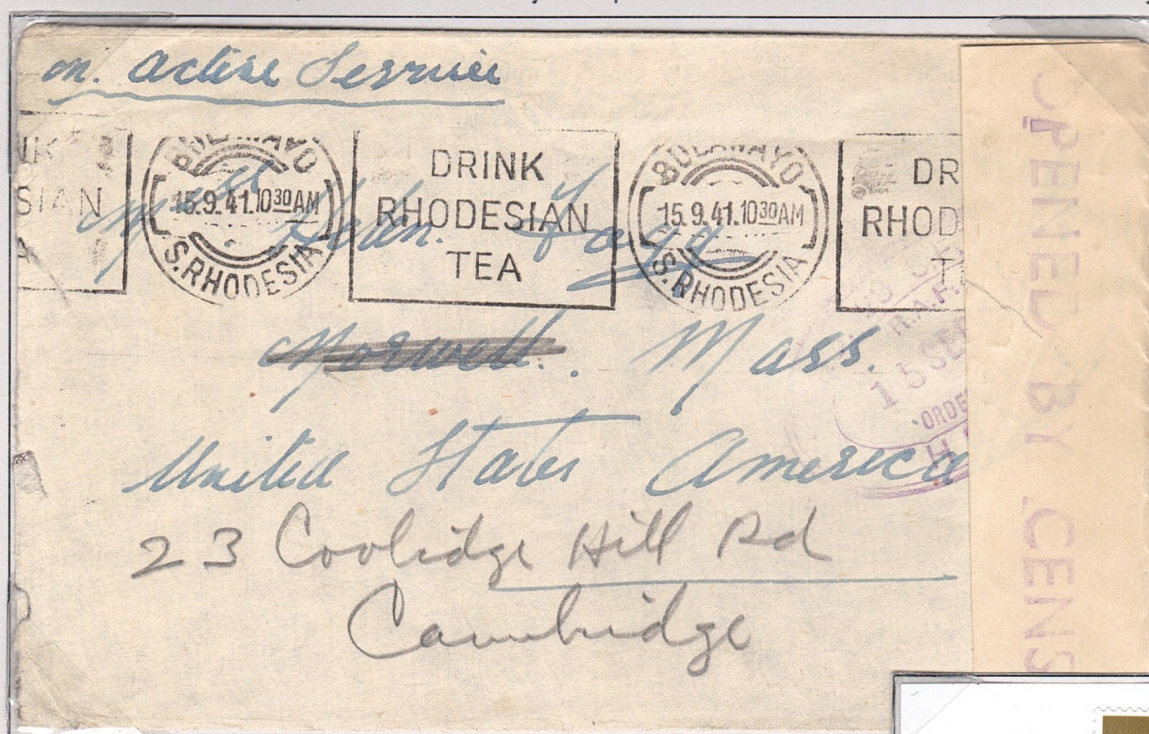 on. Active Service
BULAWAYO
15.9.41.1030AM
S. RHODESIA
DRINK
RHODESIAN
TEA
BULAWAYO
15.9.41.1030AM
S. RHODESIA
DR
RHOD
T
SIAN
Miss Helen. Fogg
Norwell. Mass.
United States America
23 Coolidge Hill Rd
Cambridge
R.A.F.
15 SEP
ORDE
OPENED BY CENS